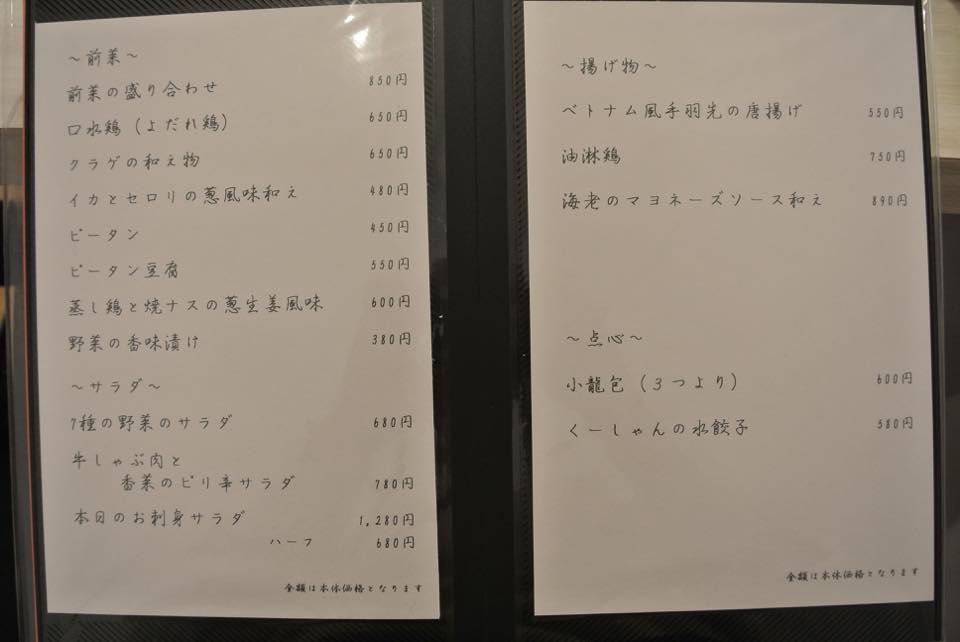 ～前菜～
前菜の盛り合わせ 850円
口水鶏（よだれ鶏） 650円
クラゲの和え物 650円
イカとセロリの葱風味和え 480円
ピータン 450円
ピータン豆腐 550円
蒸し鶏と焼ナスの葱生姜風味 600円
野菜の香味漬け 380円
～サラダ～
7種の野菜のサラダ 680円
牛しゃぶ肉と
香菜のピリ辛サラダ 780円
本日のお刺身サラダ 1,280円
ハーフ 680円
金額は本体価格となります
～揚げ物～
ベトナム風手羽先の唐揚げ 550円
油淋鶏 750円
海老のマヨネーズソース和え 890円
～点心～
小龍包（3つより） 600円
くーしゃんの水餃子 580円
金額は本体価格となります